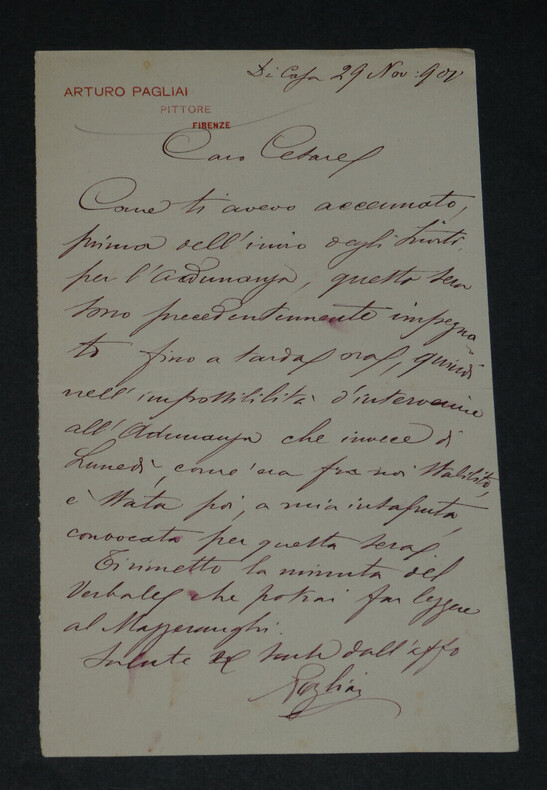 Di Casa 29 Nov: 900
ARTURO PAGLIAI
PITTORE
FIRENZE
Caro Cesare
Come ti avevo accennato,
prima dell'invio degli Inviti,
per l'Adunanza, questa sera
sono precedentemente impegna-
to fino a tarda ora, quindi
nell'impossibilità d'intervenire
all'Adunanza che invece di
Lunedì, com'era fra noi stabilito,
è stata poi, a mia insaputa,
convocata per questa sera.
Ti rimetto la minuta del
Verbale che potrai far leggere
al Mazzeranghi.
Salute dall'affo
Pagliai